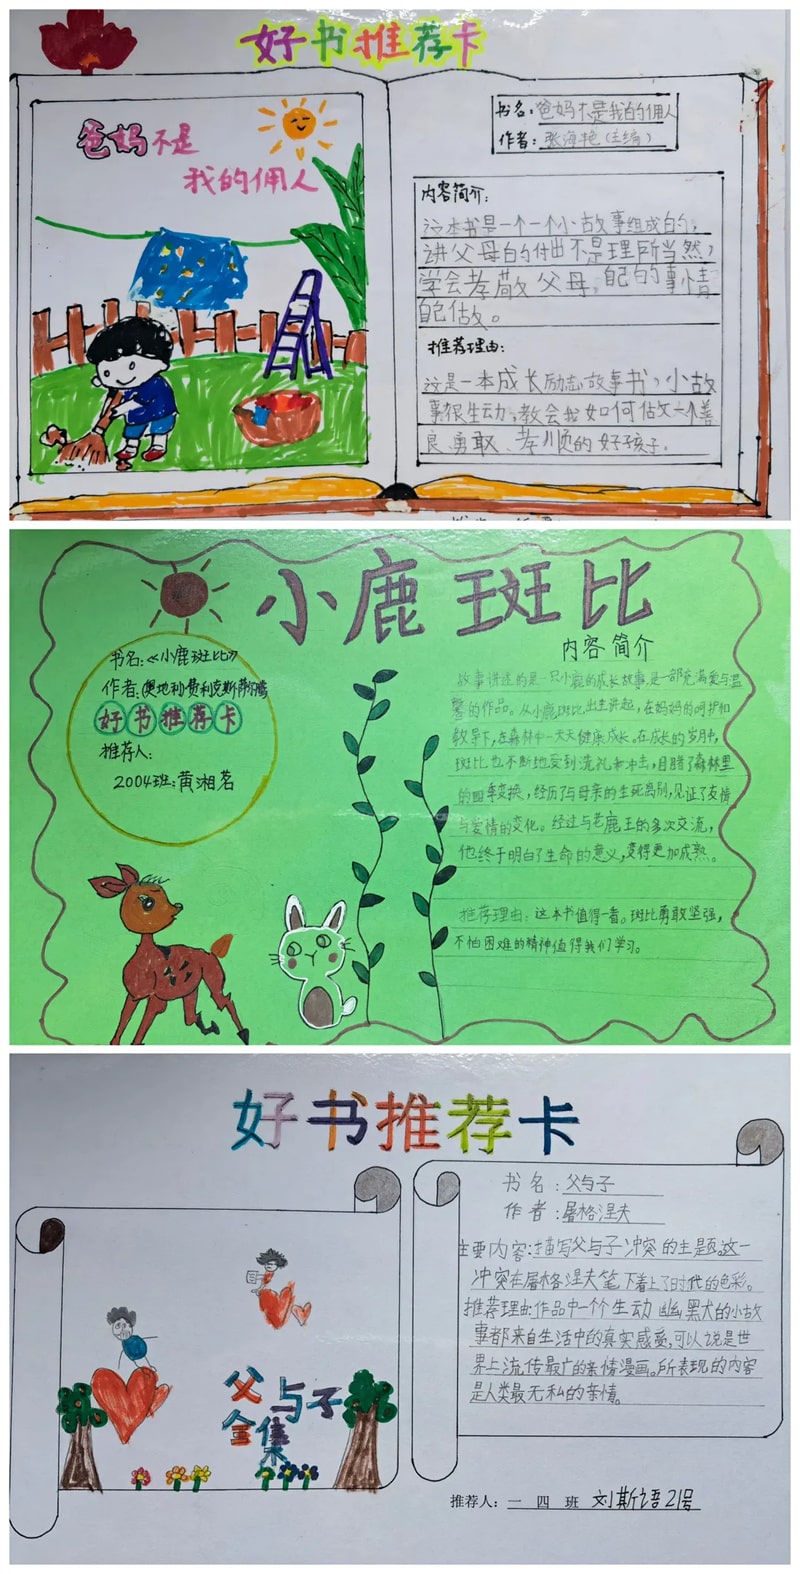 好书推荐卡
爸妈不是
我的佣人
书名:爸妈不是我的佣人
作者:张海艳(主编)
内容简介:
这本书是一个一个小故事组成的,
讲父母的付出不是理所当然,
学会孝敬父母,自己的事情
自己做。
推荐理由:
这是一本成长励志故事书,小故
事很生动,教会我如何做一个善
良、勇敢、孝顺的好孩子。
小鹿斑比
书名:《小鹿斑比》
作者:(奥地利)费利克斯·萨尔腾
好书推荐卡
推荐人:
2004班:黄湘茗
内容简介
故事讲述的是一只小鹿的成长故事,是一部充满爱与温
馨的作品。从小鹿斑比出生讲起,在妈妈的呵护和
教导下,在森林中一天天健康成长。在成长的岁月中,
斑比也不断地受到洗礼和冲击,目睹了森林里
的四季变换,经历了与母亲的生死离别,见证了友情
与爱情的变化。经过与老鹿王的多次交流,
他终于明白了生命的意义,变得更加成熟。
推荐理由:这本书值得一看。斑比勇敢坚强,
不怕困难的精神值得我们学习。
好书推荐卡
父与子
全集
书名:父与子
作者:屠格涅夫
主要内容:描写父与子冲突的主题。这一
冲突在屠格涅夫笔下着上了时代的色彩。
推荐理由:作品中一个个生动幽默的小故
事都来自生活中的真实感受,可以说是世
界上流传最广的亲情漫画。所表现的内容
是人类最无私的亲情。
推荐人:一 四 班 刘斯语21号